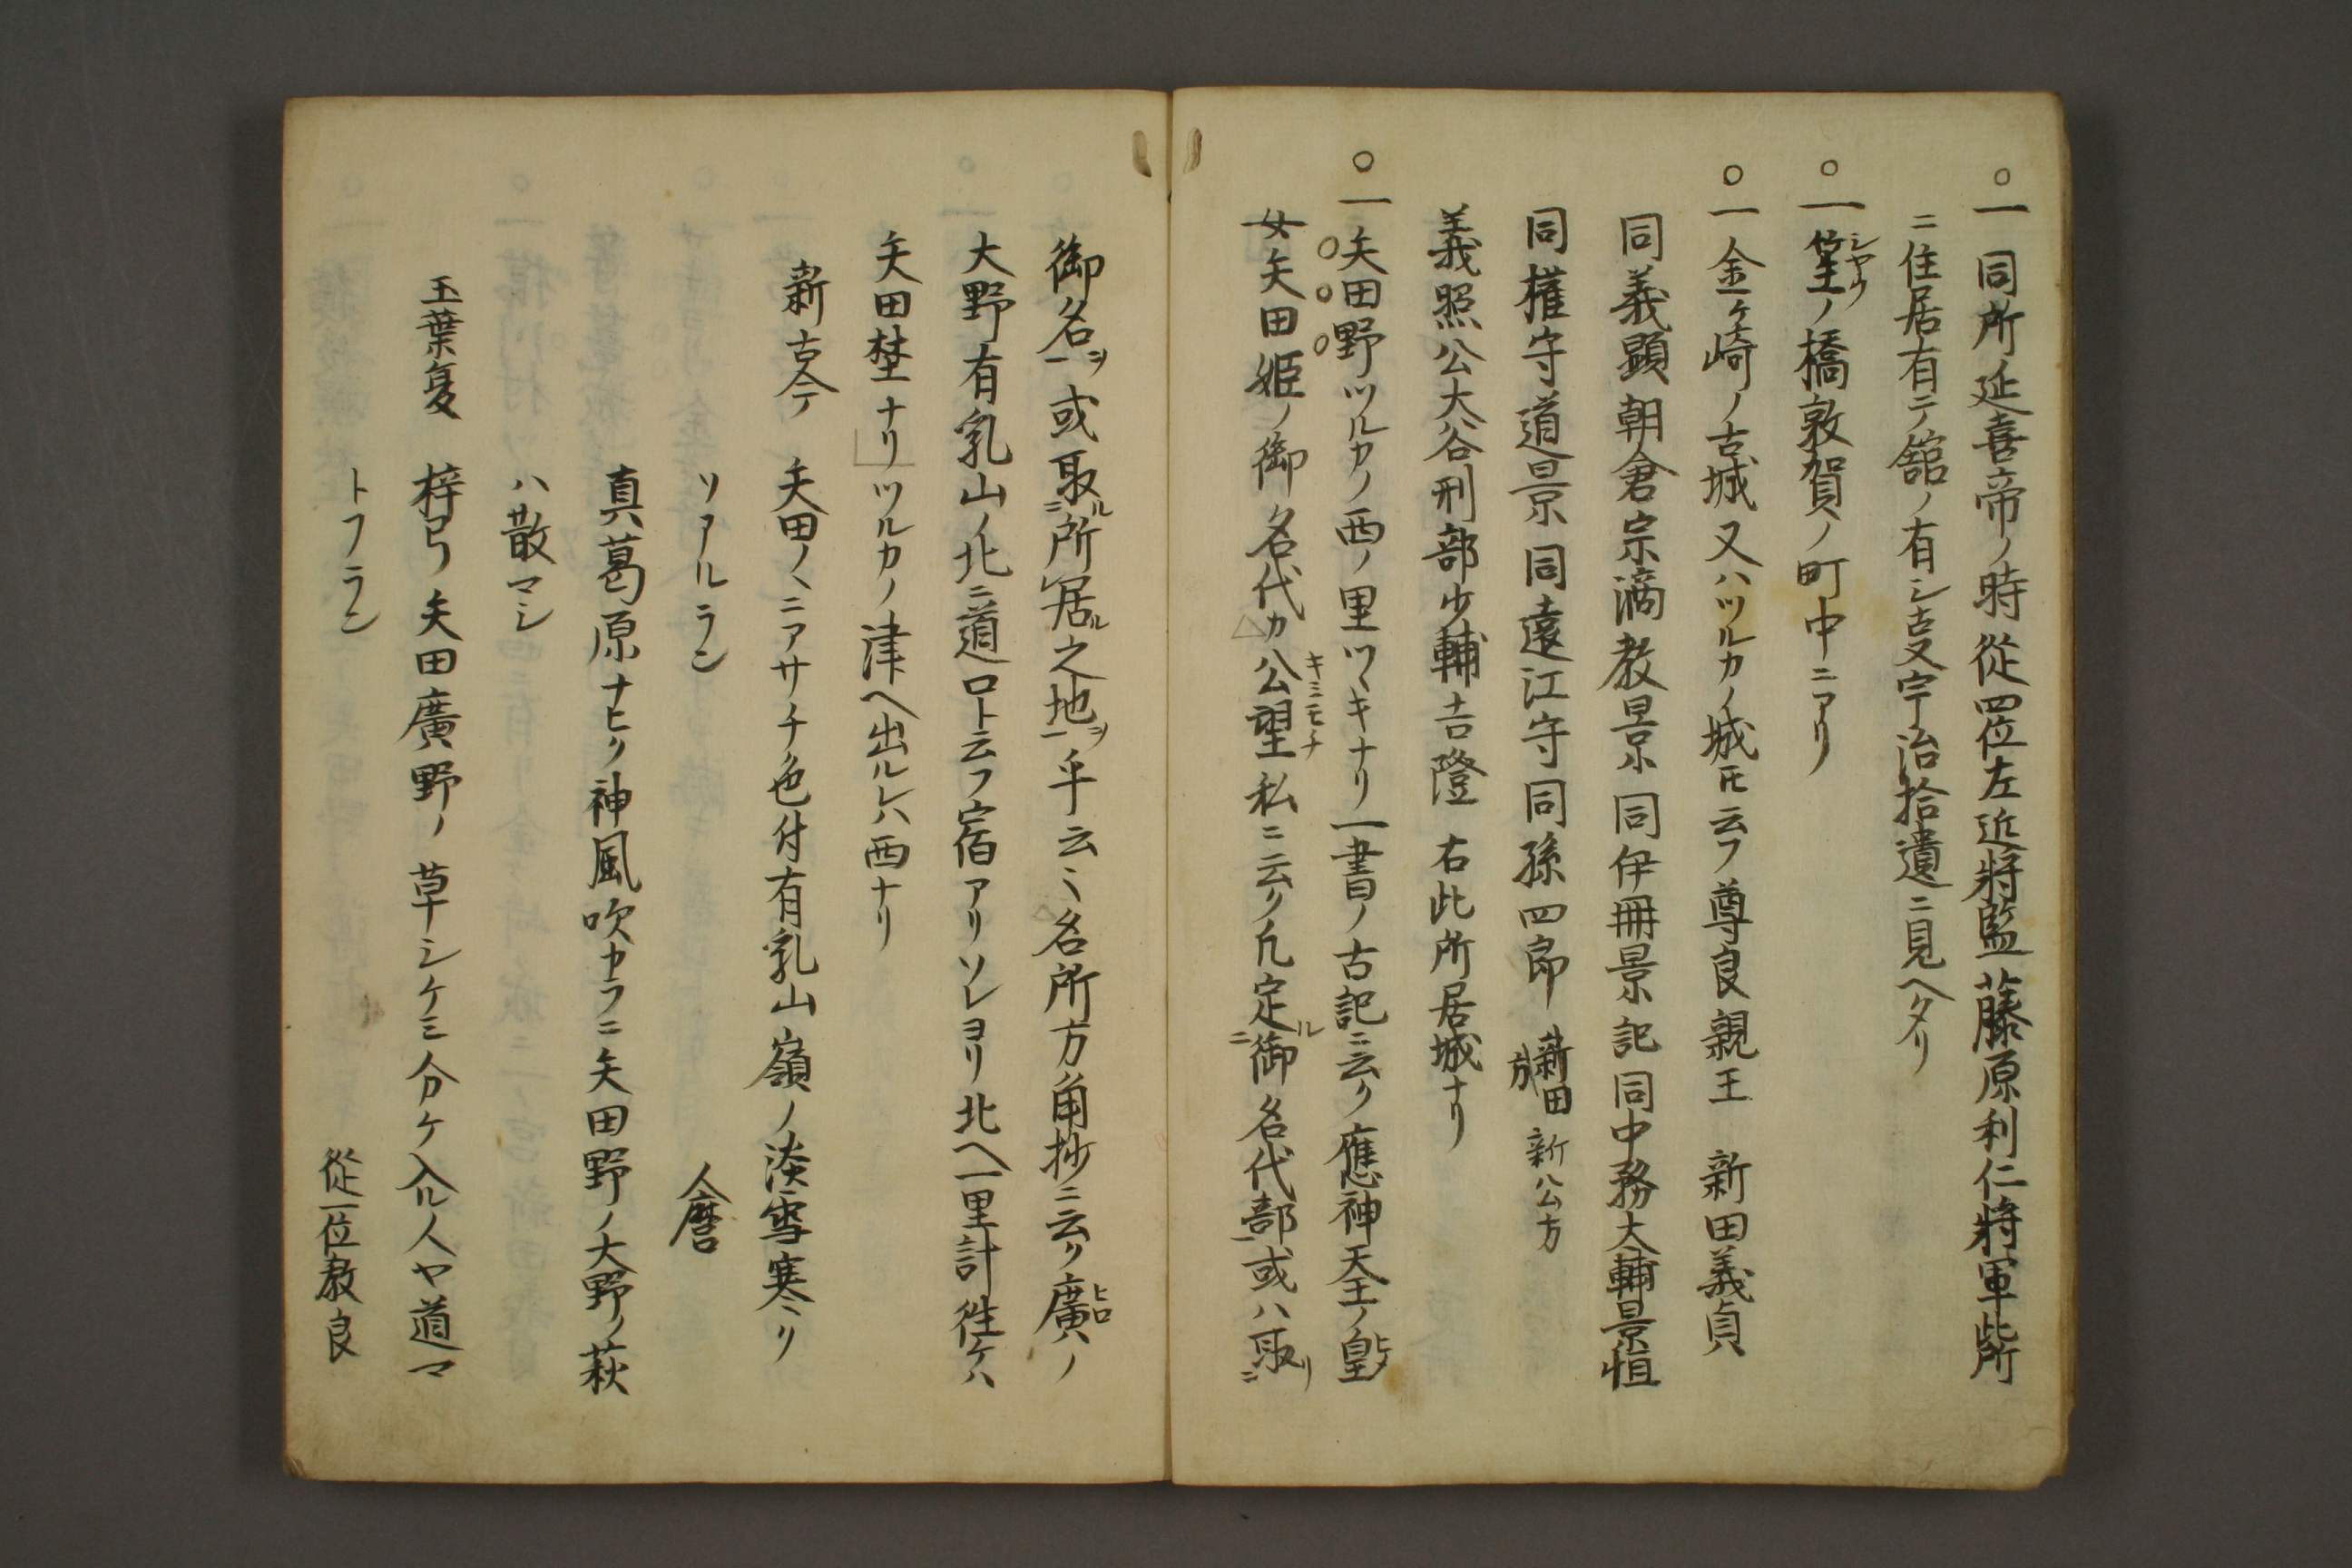 ○一同所延喜帝ノ時從四位左近將監藤原利仁將軍此所
ニ住居有テ舘ノ有シ支宇治拾遺ニ見ヘタリ
○一笙ノ橋敦賀ノ町中ニアリ
○一金ケ崎ノ古城又ハツルカノ城トモ云フ尊良親王 新田義貞
同義顕朝倉宗滴教景同伊冊景記同中務大輔景恒
同權守道景同遠江守同孫四郎 新田 新公方
義照公大谷刑部少輔吉隆 右此所居城ナリ
○一矢田野ツルカノ西ノ里ツヽキナリ一書ノ古記ニ云ク應神天王ノ皇
女矢田姫ノ御名代カ公望私ニ云ク凡定ル御名代部或ハ取リ
御名ヲ或取ル所居ル之地ヲ乎云々名所方角抄ニ云ク廣ノ
大野有乳山ノ北ニ道口ト云フ宿アリソレヨリ北ヘ一里計徃ケハ
矢田埜ナリツルカノ津ヘ出ルレハ西ナリ
新古今 矢田ノヽニアサチ色付有乳山嶺ノ淡雪寒クソ
アルラン 人麿
真葛原ナヒク神風吹カラニ矢田野ノ大野ノ萩
ハ散マシ
玉葉夏 梓弓矢田廣野ノ草シケミ分ケ入ル人ヤ道マ
トフラン 從一位教良